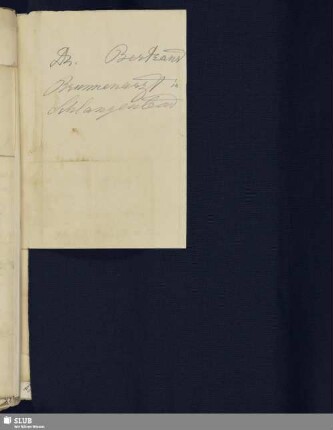 Dr. Bertrand
Brunnenarzt in
Schlangenbad
SLUB
Wir führen Wissen.